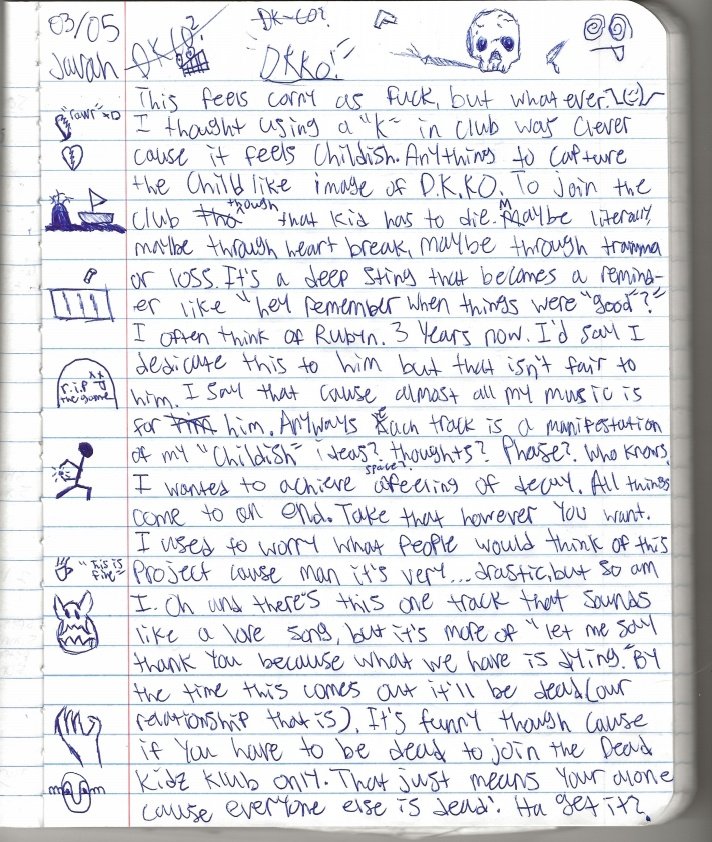 03/05
Javah
DKCO?
DK-CO?
"DKKO!"
This feels corny as fuck, but whatever.
"rawr" xD
I thought using a "K" in club was clever
cause it feels childish. Anything to capture
the Childlike image of D.K.KO. To join the
club though that kid has to die. Maybe literally,
maybe through heart break, maybe through trauma
or loss. It's a deep sting that becomes a remind-
er like "hey remember when things were "good"?"
I often think of Rubyn. 3 years now. I'd say I
dedicate this to him but that isn't fair to
r.i.p
the game
him. I say that cause almost all my music is
for him. Anyways Each track is a manifestation
of my "Childish" ideas? thoughts? Phase? Who knows.
space?
I wanted to achieve a feeling of decay. All things
come to an end. Take that however you want.
I used to worry what people would think of this
"This is fine"
Project cause man it's very... drastic, but so am
I. Oh and there's this one track that sounds
like a love song, but it's more of "let me say
thank you because what we have is dying." By
the time this comes out it'll be dead (our
relationship that is). It's funny though cause
if you have to be dead to join the Dead
Kidz Klub only. That just means your alone
cause everyone else is dead! Ha get it?